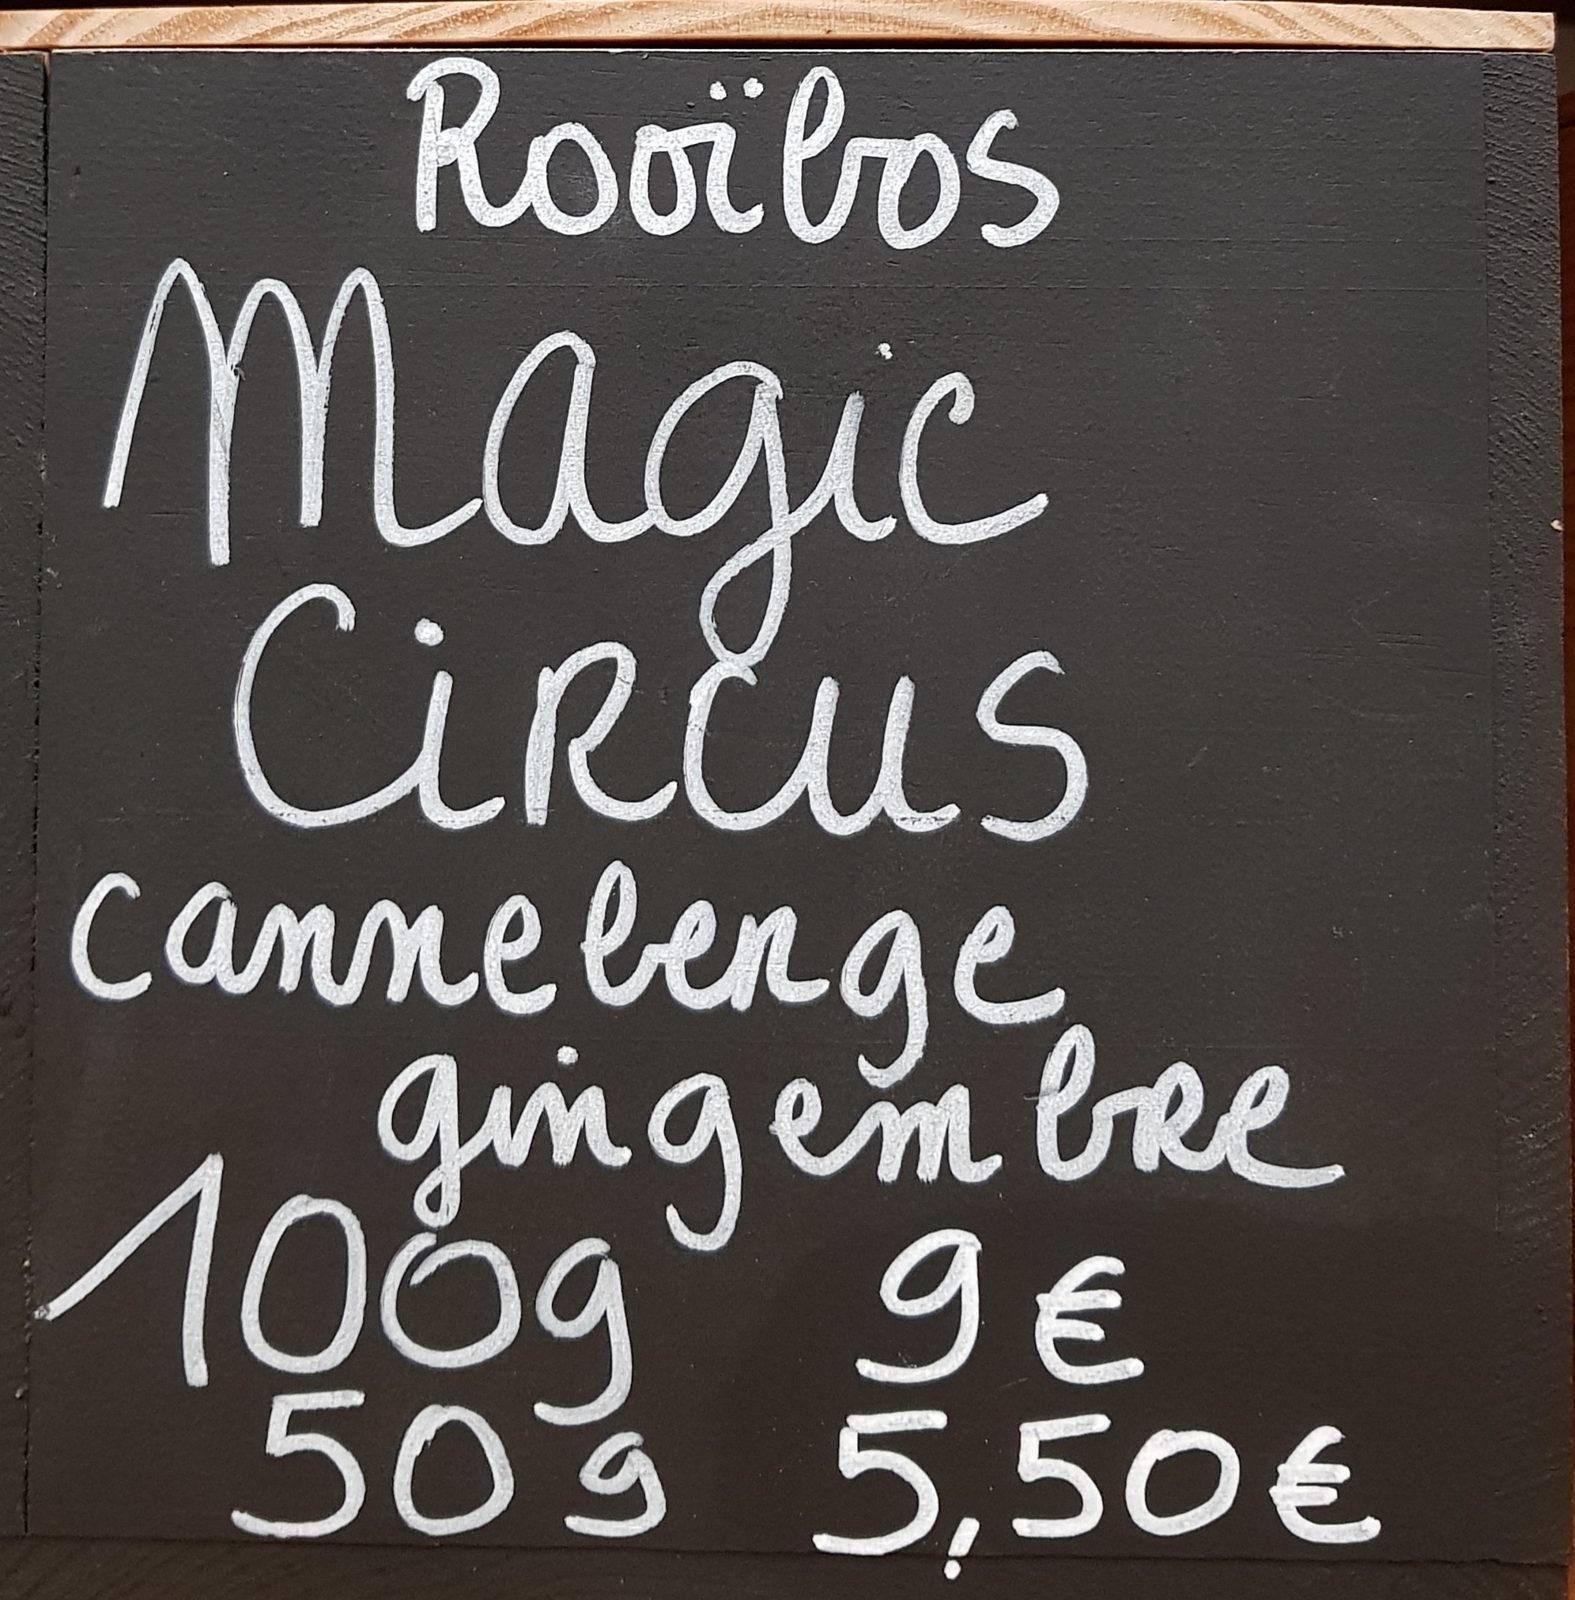 Rooïbos
Magic
Circus
canneberge
gingembre
100g 9€
50g 5,50€